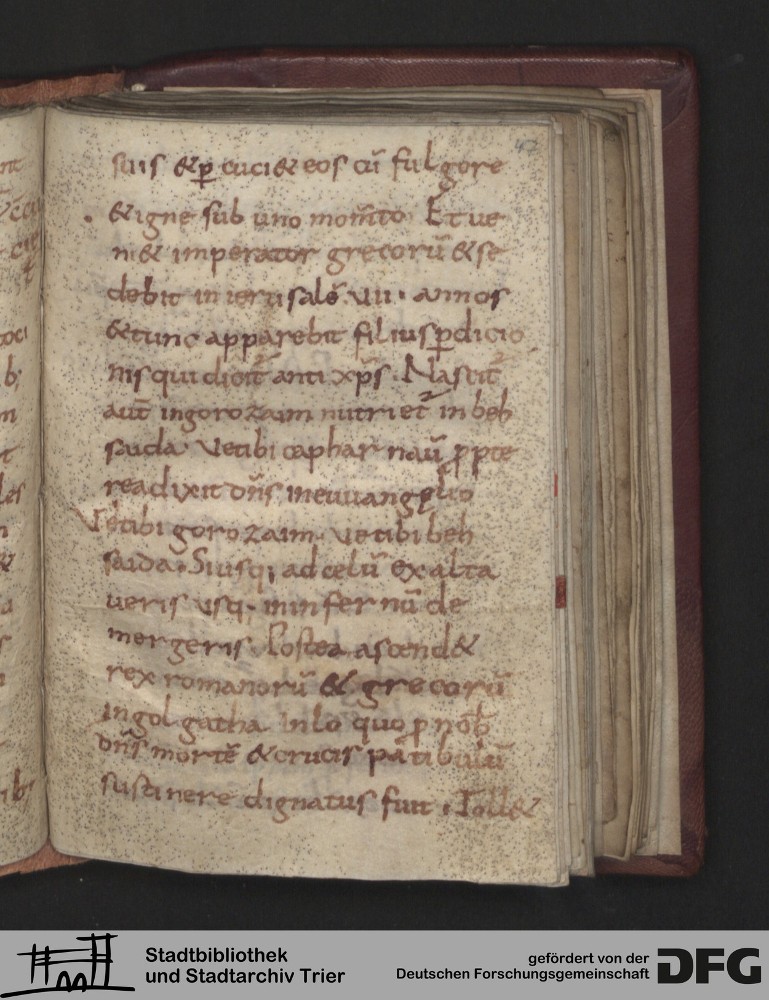 suis & p̱ cuci& eos cū fulgore
& igne sub uno mom̄to. Et ue
ni& imperator grecorū & se
debit in ierusalē. VII. annos
& tunc apparebit filius p̱dicio
nis qui dicit̄ anti xp̄s. Nascit̄
aut̄ in gorozaim nutriet̄ in beh
saida. Ve tibi caphar naū p̱pte
rea dixit dn̄s in euuangelio
Ve tibi gorozaim. ve tibi beh
saida. Si usq; ad celū exalta
ueris usq; in infernū de
mergeris. Postea ascend&
rex romanorū & grecorū
in golgatha in lo quo p̱ nob̄
dn̄s mortē & crucis patibulū
sustinere dignatus fuit. Toll&
Stadtbibliothek
und Stadtarchiv Trier
gefördert von der
Deutschen Forschungsgemeinschaft
DFG